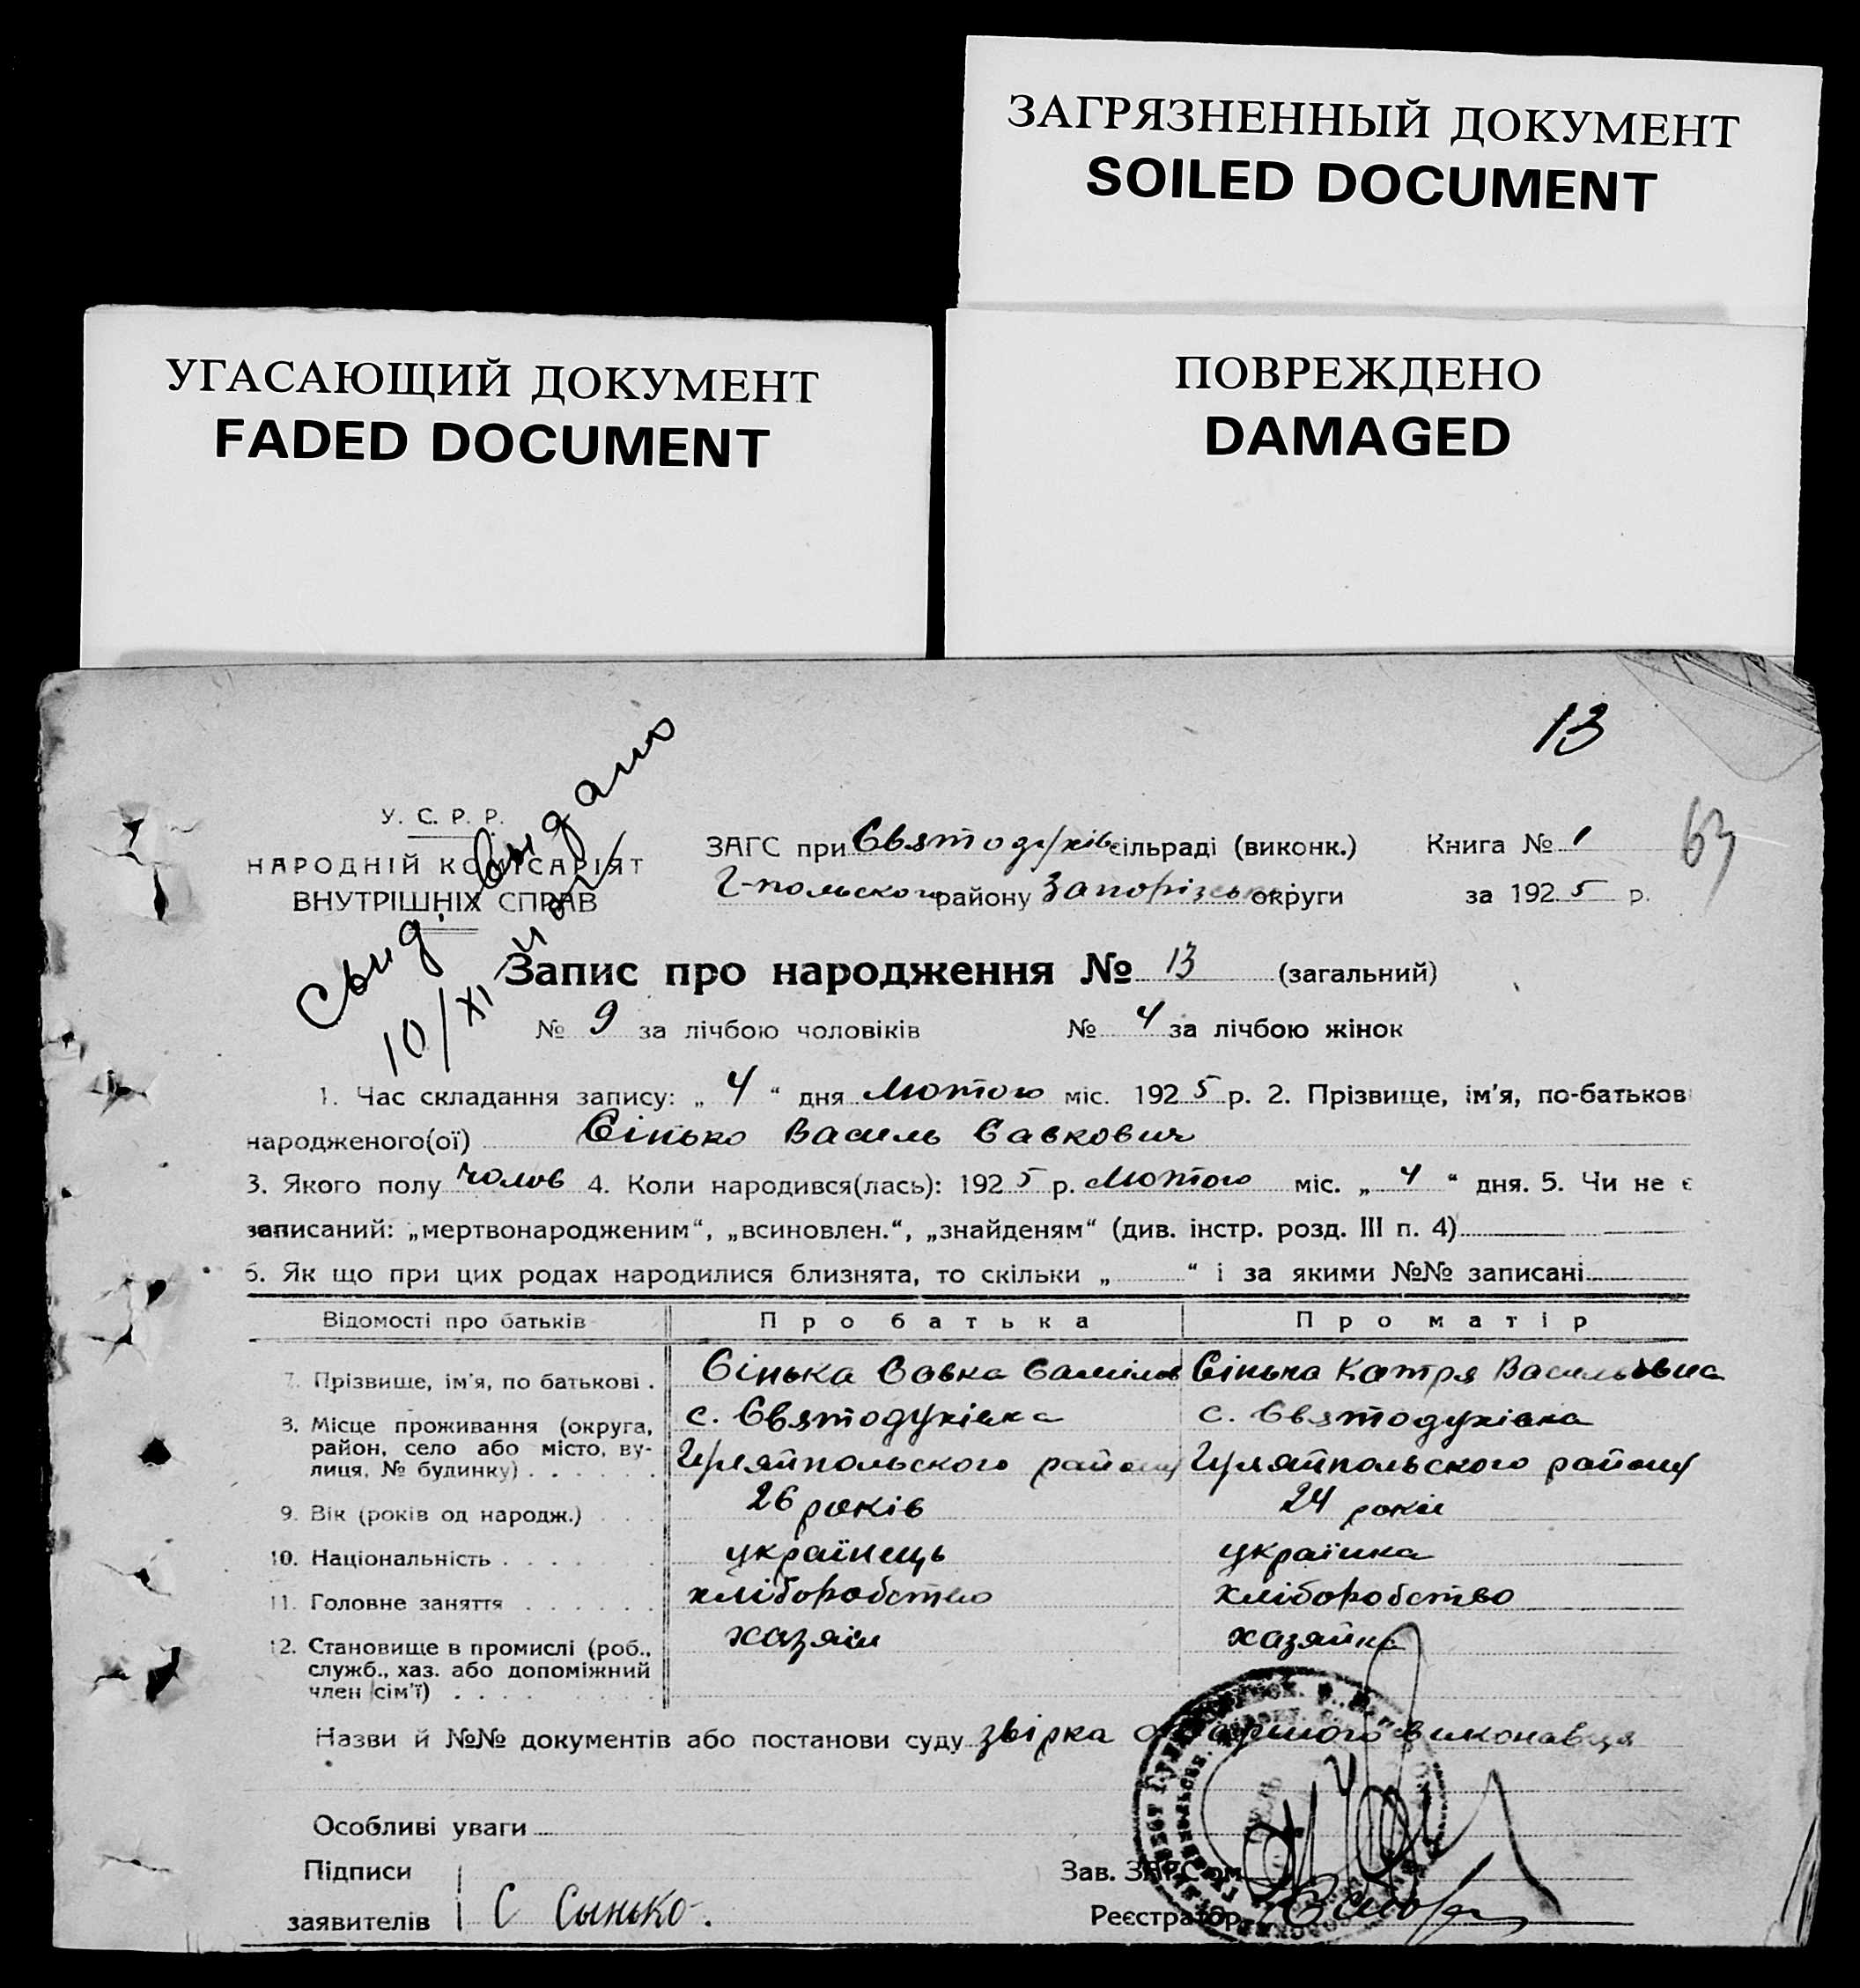 ЗАГРЯЗНЕННЫЙ ДОКУМЕНТ
SOILED DOCUMENT
УГАСАЮЩИЙ ДОКУМЕНТ
FADED DOCUMENT
ПОВРЕЖДЕНО
DAMAGED
13
63
Свид. выдано
10/XI
У. С. Р. Р.
НАРОДНІЙ КОМІСАРІЯТ
ВНУТРІШНІХ СПРАВ
ЗАГС при Святодухів сільраді (виконк.) Книга № 1
Г-польского району Запорізьк округи за 1925 р.
Запис про народження № 13 (загальний)
№ 9 за лічбою чоловіків № 4 за лічбою жінок
1. Час складання запису: „ 4 “ дня Лютого міс. 1925 р. 2. Прізвище, ім'я, по-батьков
народженого(ої) Сінько Василь Савкович
3. Якого полу чолов 4. Коли народився(лась): 1925 р. Лютого міс. „ 4 “ дня. 5. Чи не є
записаний: „мертвонародженим“, „всиновлен.“, „знайденям“ (див. інстр. розд. III п. 4)
6. Як що при цих родах народилися близнята, то скільки „ “ і за якими №№ записані
Відомості про батьків Про батька Про матір
7. Прізвище, ім'я, по батькові . Сінька Савка Самілов Сінька Катря Васильівна
8. Місце проживання (округа, с. Святодухівка с. Святодухівка
район, село або місто, ву-
лиця, № будинку) Гуляйпольского району Гуляйпольского району
9. Вік (років од народж.) 26 років 24 роки
10. Національність українець українка
11. Головне заняття хліборобство хліборобство
12. Становище в промислі (роб., хазяїн хазяйка
служб., хаз. або допоміжний
член сім'ї)
Назви й №№ документів або постанови суду звірка виконавця
Особливі уваги
Підписи Зав. ЗАГС'ом
заявителів С Сынько. Реєстратор